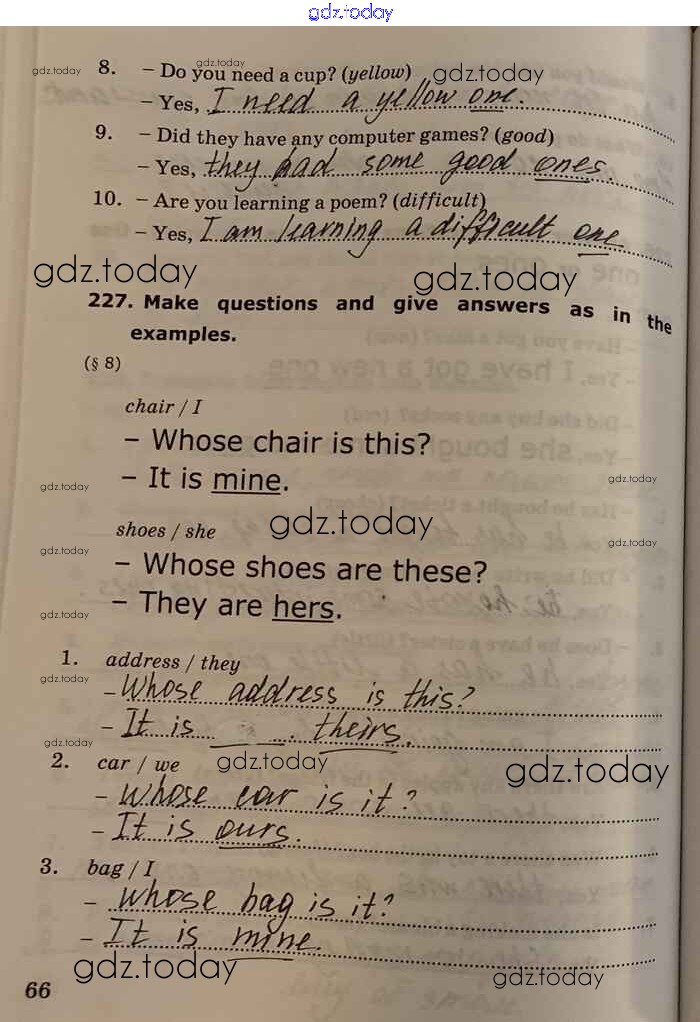 gdz.today
8. – Do you need a cup? (yellow)
– Yes, I need a yellow one.
9. – Did they have any computer games? (good)
– Yes, they had some good ones.
10. – Are you learning a poem? (difficult)
– Yes, I am learning a difficult one
gdz.today gdz.today
227. Make questions and give answers as in the
examples.
(§ 8)
chair / I
– Whose chair is this?
– It is mine.
gdz.today gdz.today
shoes / she
gdz.today
– Whose shoes are these?
– They are hers.
1. address / they
– Whose address is this?
– It is theirs.
2. car / we
gdz.today
– Whose car is it?
– It is ours.
3. bag / I
– Whose bag is it?
– It is mine.
gdz.today gdz.today
66